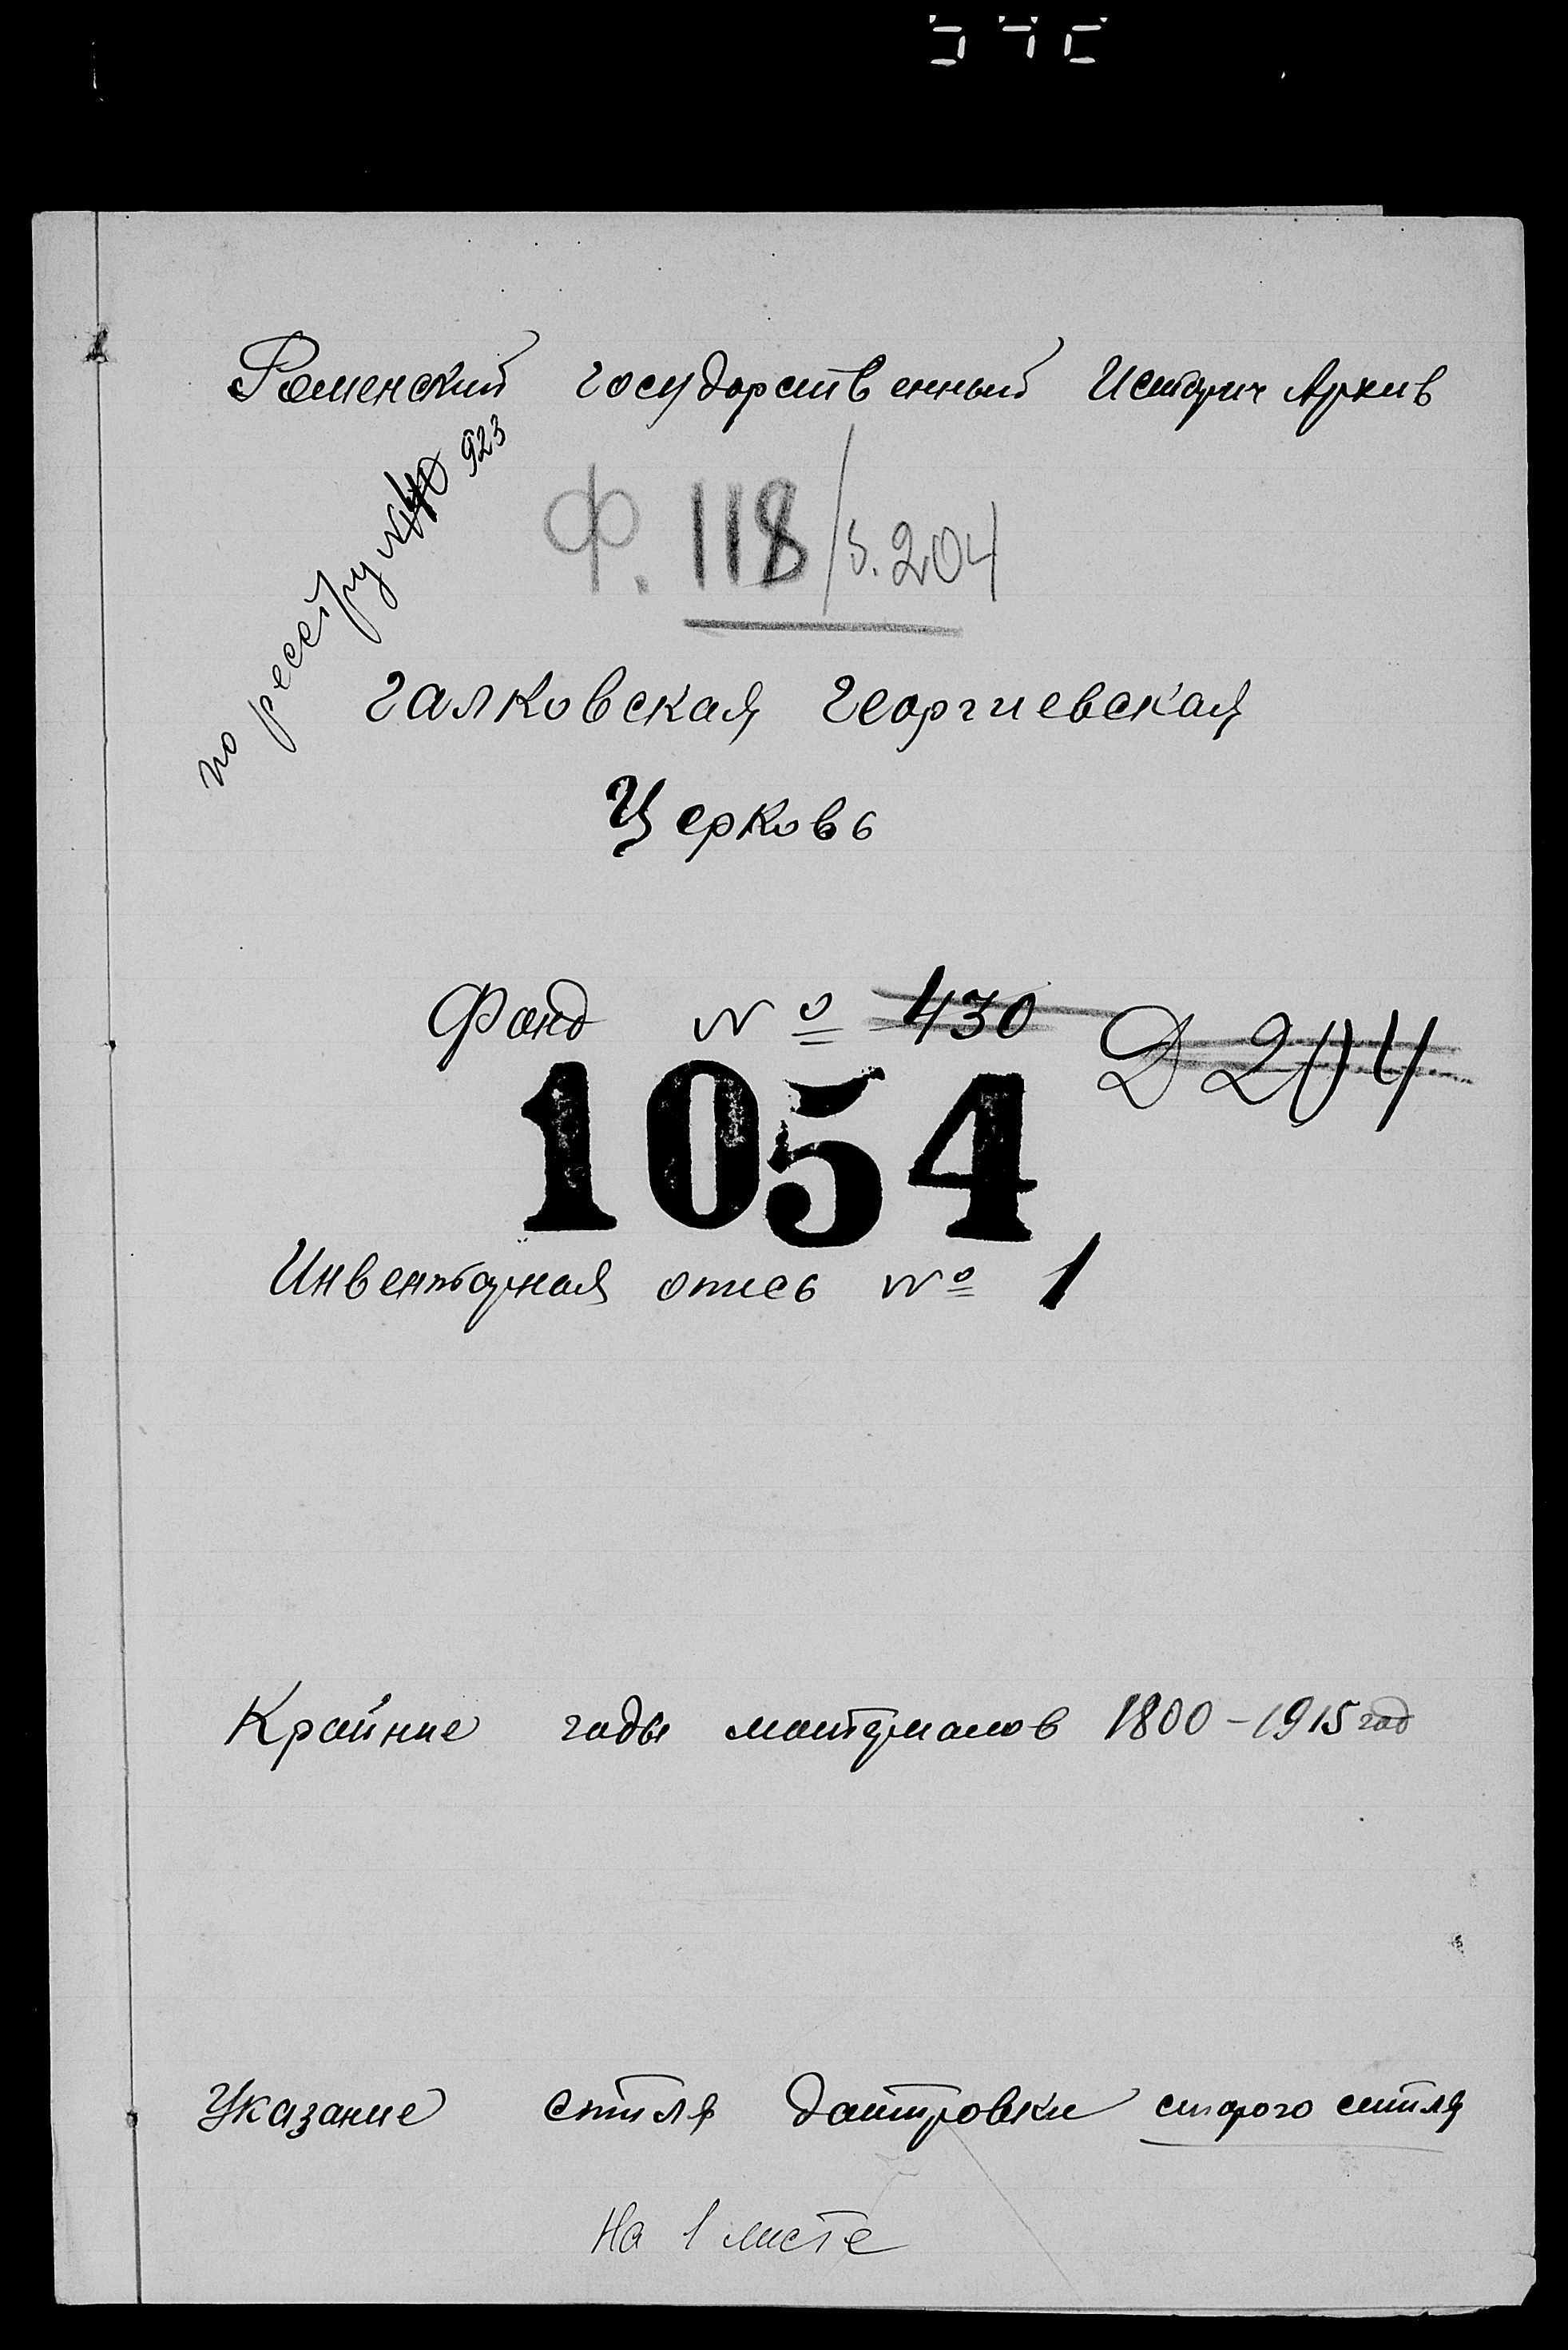 Роменский Государственный Историч Архив
по реесетру № 40 923
Ф. 118/s. 204
Галковская Георгиевская
Церковь
Фонд № 430
Д 204
1054
Инвентарная опись № 1
Крайние годы материалов 1800-1915 год
Указание стиля датировки старого стиля
На 1 листе